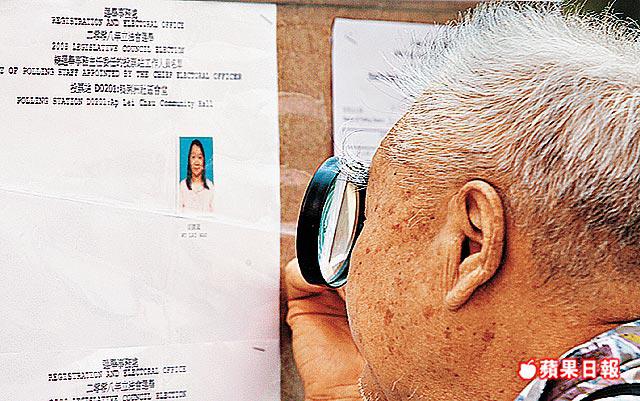 選舉事務處
REGISTRATION AND ELECTORAL OFFICE
二零零八年立法會選舉
2008 LEGISLATIVE COUNCIL ELECTION
總選舉事務主任委任的投票站工作人員名單
T OF POLLING STAFF APPOINTED BY THE CHIEF ELECTORAL OFFICER
投票站 D0201:鴨脷洲社區會堂
POLLING STATION D0201:Ap Lei Chau Community Hall
選舉事務處
REGISTRATION AND ELECTORAL OFFICE
二零零八年立法會選舉
LEGISLATIVE COUNCIL ELECTION
蘋果日報